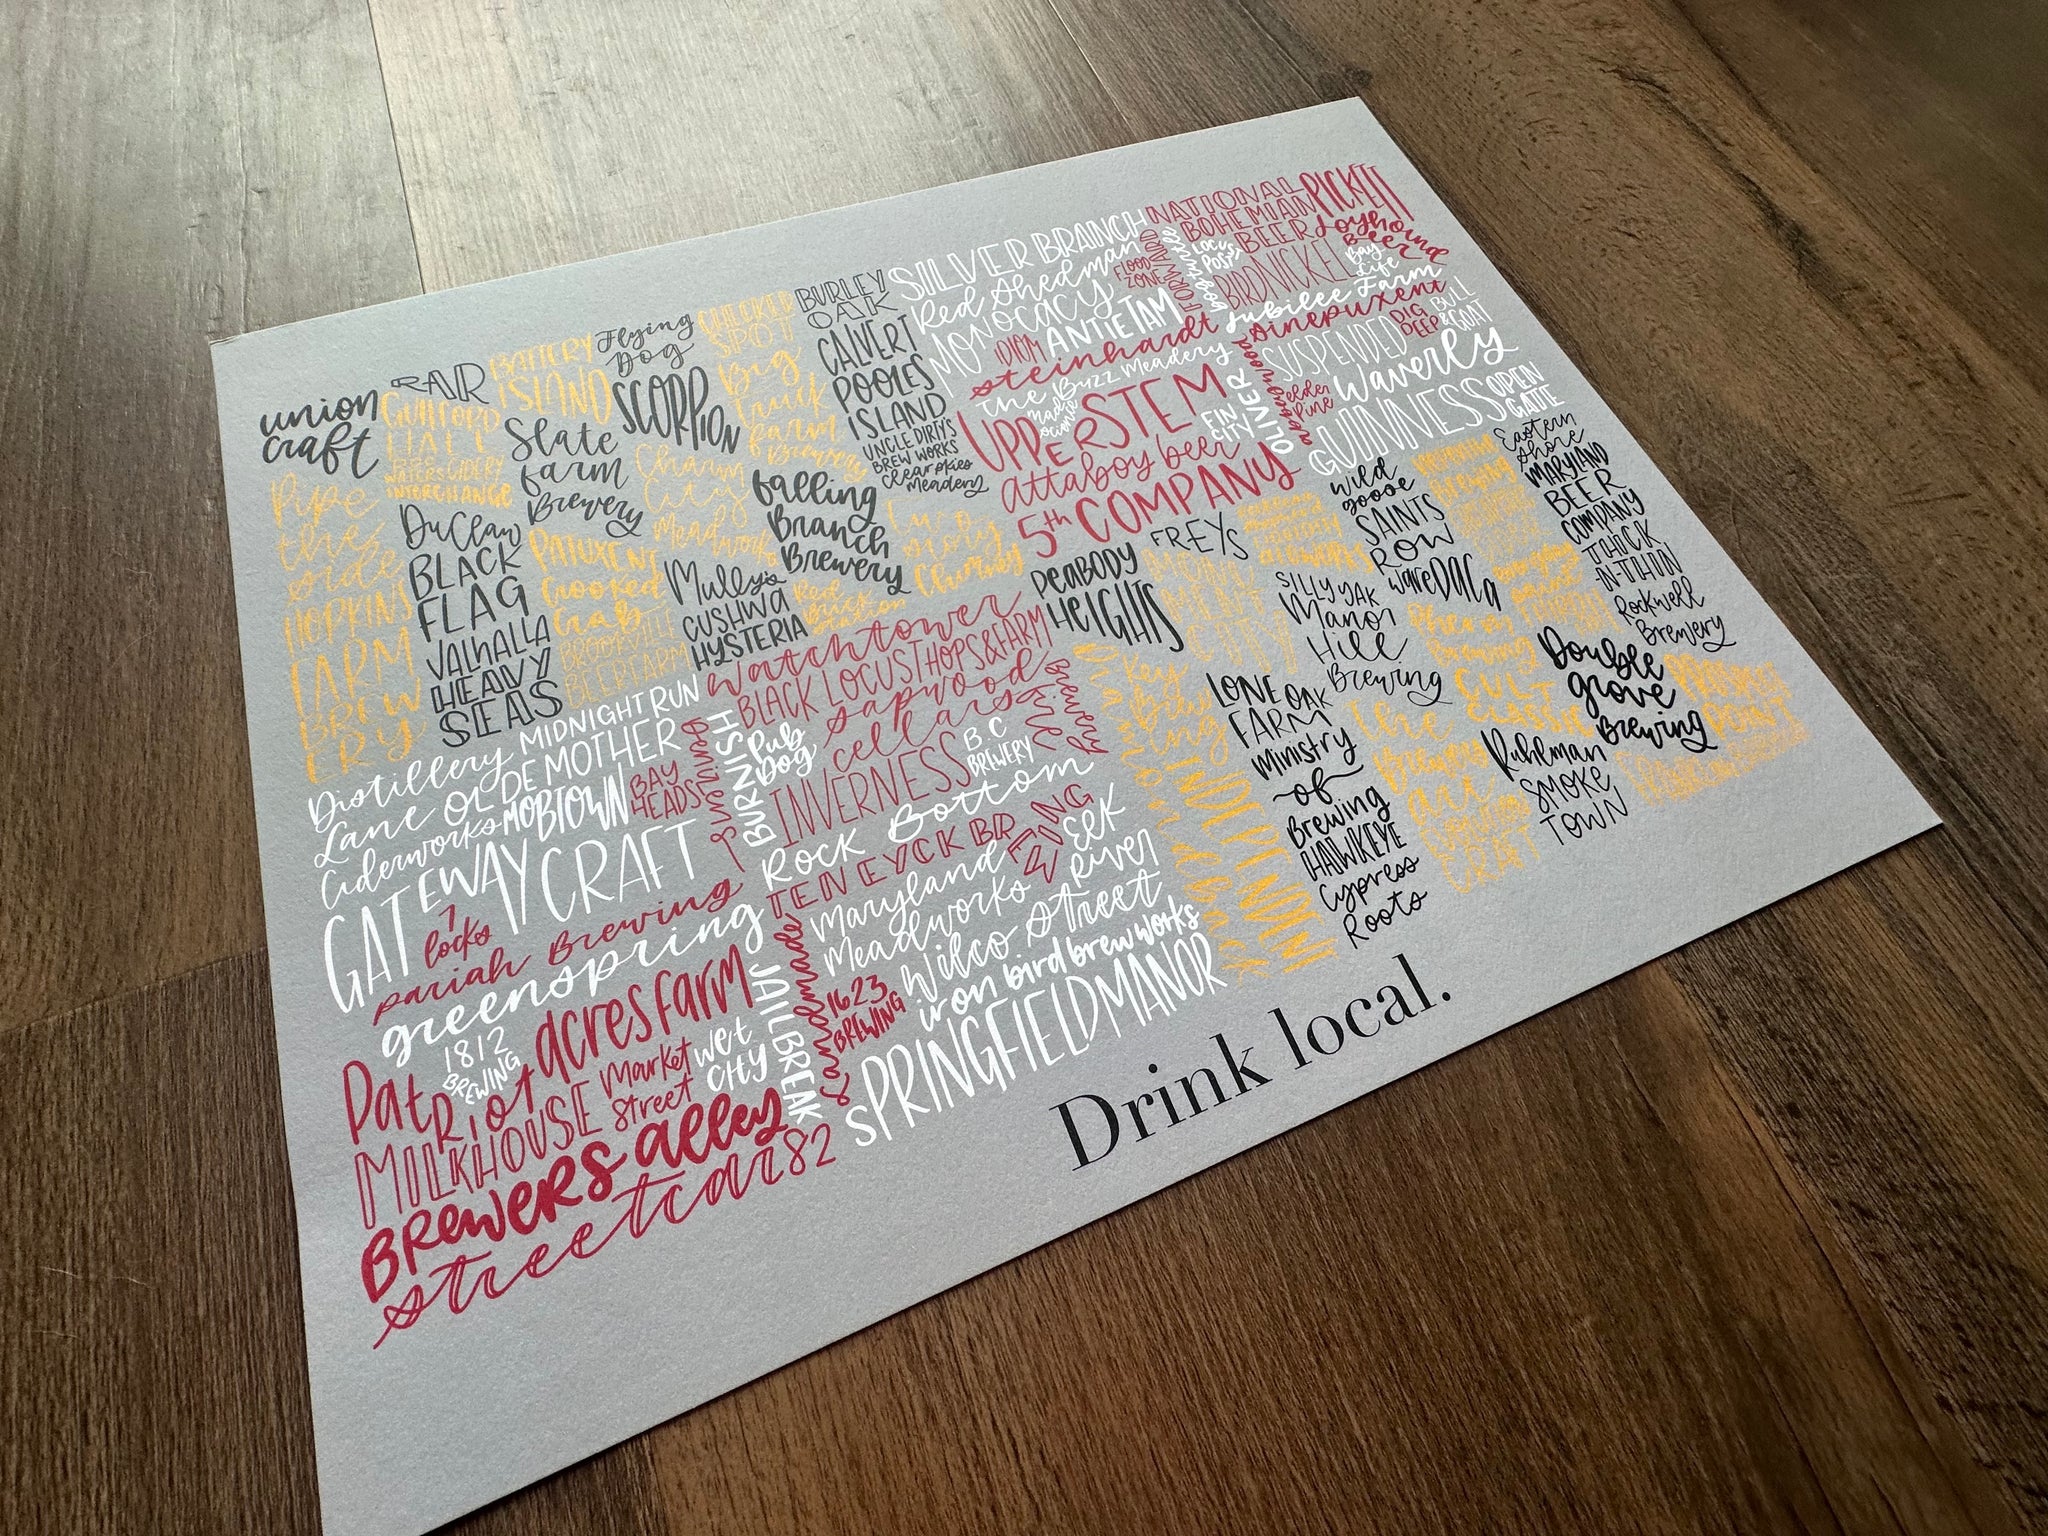 union
craft
Pipe
the
side
HOPKINS
FARM
BREW
ERY
RAR
GUILFORD
HALL
INTERCHANGE
DuClaw
BLACK
FLAG
VALHALLA
HEAVY
SEAS
BATTERY
ISLAND
Slate
farm
Brewery
PATUXENT
Crooked
Crab
BROOKEVILLE
BEERFARM
Flying
Dog
SCORPION
Charm
City
Meadworks
Mully's
CUSHWA
HYSTERIA
CHECKER
SPOT
Big
truck
farm
Brewery
falling
Branch
Brewery
Red
Brick
Station
BURLEY
OAK
CALVERT
POOLES
ISLAND
UNCLE DIRTY'S
BREW WORKS
clear skies
meadery
Churney
SILVER BRANCH
Red Shedman
MONOCACY
ANTIETAM
IDIOM
steinhardt
the Buzz Meadery
Mad
Science
UPPER STEM
attaboy beer
5th COMPANY
FLOOD
ZONE
FORWARD
NATIONAL
BOHEMIAN
BEER
PICKETT
Loyhound
Beer
LOCUST
POST
BIRD NICKEL
Bay
Life
Jubilee Farm
Sinepuxent
SUSPENDED
DIG
DEEP
BULL
& GOAT
elder
pine
Waverly
FIN
CITY
OLIVER
GUINNESS
OPEN
GATE
PEABODY
HEIGHTS
FREY'S
MONU
MENT
CITY
Key
Brew
ing
Diamondback
INDEPENDENT
SILLY YAK
Manor
Hill
Brewing
LONE OAK
FARM
Ministry
of
Brewing
HAWKEYE
Cypress
Roots
wild
goose
SAINTS
ROW
WAREDACA
Brewing
CULT
CLASSIC
the
Brewery
CRAFT
Eastern
Shore
MARYLAND
BEER
COMPANY
THICK
-N-THIN
Rockwell
Brewery
Double
grove
Brewing
Ruhlman
SMOKE
TOWN
POINT
Distillery
Lane
Ciderworks
MIDNIGHT RUN
OL'DE MOTHER
MOBTOWN
BAY
HEADS
GATEWAY CRAFT
7
locks
pariah Brewing
greenspring
1812
BREWING
Patriot acres farm
MILKHOUSE
Market
Street
wet
CITY
JAILBREAK
BREWERS alley
streetcar 82
watchtower
BLACK LOCUST HOPS & FARM
BURNISH
Pub
Dog
sapwood
cellars
INVERNESS
B.C
BREWERY
fire
Brewery
Rock Bottom
TEN EYCK BREWING
Maryland
Meadworks
ELK
River
Handmade
1623
BREWING
Wilco Street
iron bird brew works
SPRINGFIELD MANOR
Drink local.